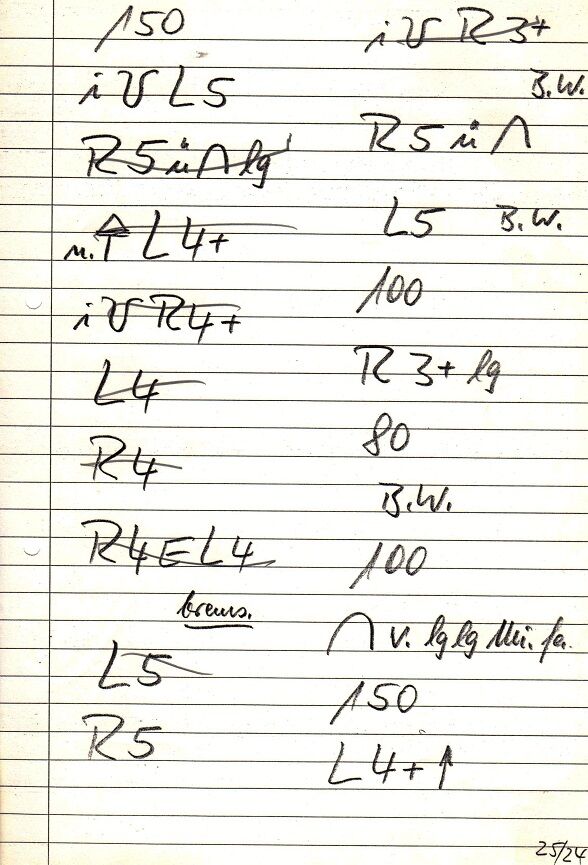 150
i V L 5
R 5 ü ∩ lg
n. ↑ L 4+
i V R 4+
L 4
R 4
R 4 E L 4
brems.
L 5
R 5
i V R 3+
B.W.
R 5 ü ∩
L 5 B.W.
100
R 3+ lg
80
B.W.
100
∩ v. lg lg Mi. fa.
150
L 4+ ↑
25/24